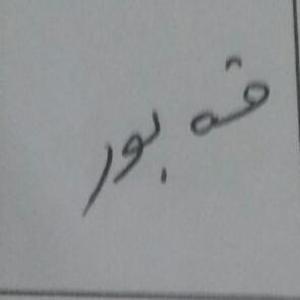 قه بور